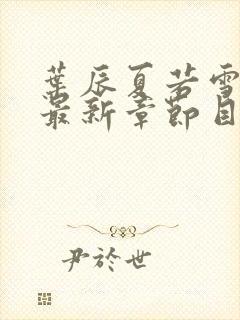 葉辰夏若雪
最新章節目
尹於世